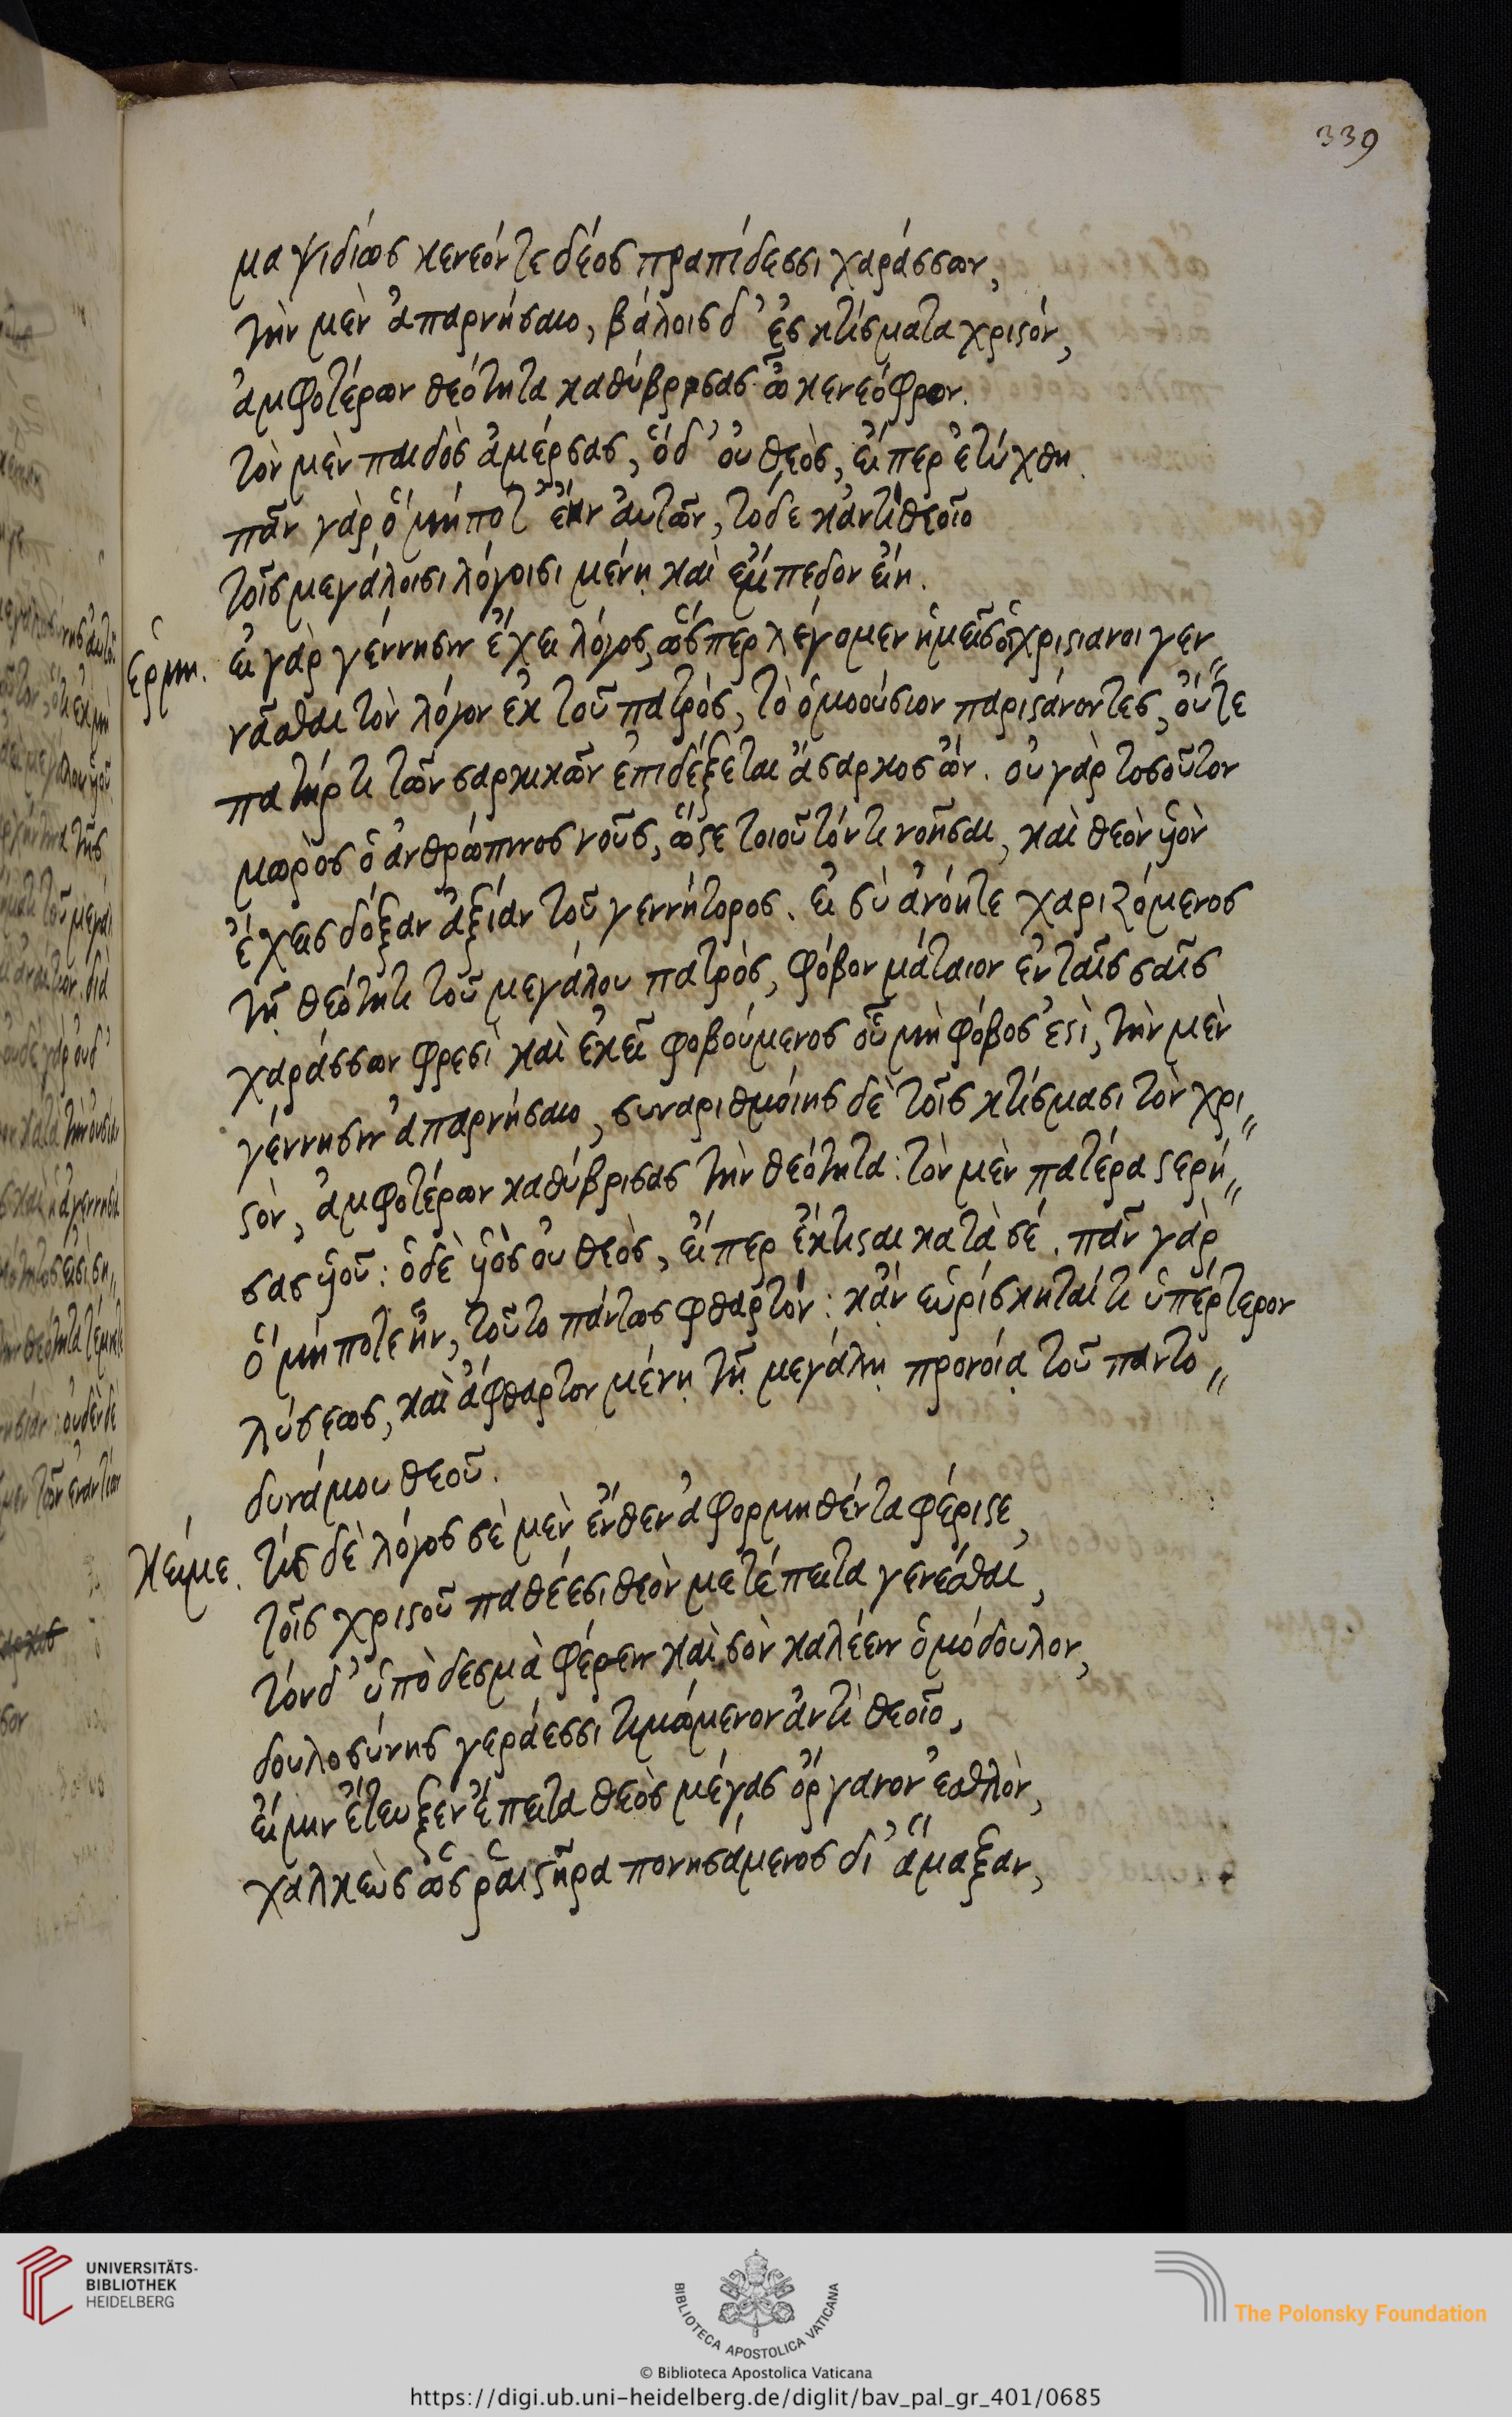 339
μαψιδίως κενεόν τε δέος πραπίδεσσι χαράσσων,
τὴν μὲν ἀπαρνήσαιο, βάλοις δ' ἐς κτίσματα χριϛόν,
ἀμφοτέρων θεότητα καθύβρισας ὦ κενεόφρον.
τὸν μὲν παιδὸς ἀμέρσας, ὅδ' οὐ θεὸς, εἴπερ ἐτύχθη.
πᾶν γὰρ ὃ μήποτ' ἔην αὐτῶν, τόδε κἀντιθεοῖο
τοῖς μεγάλοισι λόγοισι μένῃ καὶ ἔμπεδον εἴη.
ἑρμη. εἰ γὰρ γέννησιν ἔχει λόγος, ὥσπερ λέγομεν ἡμεῖς οἱ χριϛιανοι γεν„
νᾶσθαι τὸν λόγον ἐκ τοῦ πατρὸς, τὸ ὁμοούσιον παριϛάνοντες, οὔτε
πατήρ τι τῶν σαρκικῶν ἐπιδέξεται ἄσαρκος ὤν. οὐ γὰρ τοσοῦτον
μωρὸς ὁ ἀνθρώπινος νοῦς, ὥϛε τοιοῦτόν τι νοῆσαι, καὶ θεὸν ὑὸν
ἔχεις δόξαν ἀξίαν τοῦ γεννήτορος. εἰ σὺ ἀνόητε χαριζόμενος
τῇ θεότητι τοῦ μεγάλου πατρὸς, φόβον μάταιον ἐν ταῖς σαῖς
χαράσσων φρεσὶ καὶ ἐκεῖ φοβούμενος οὗ μὴ φόβος ἐϛὶ, τὴν μὲν
γέννησιν ἀπαρνήσαιο, συναριθμοίης δὲ τοῖς κτίσμασι τὸν χρι„
ϛόν, ἀμφοτέρων καθύβρισας τὴν θεότητα: τὸν μὲν πατέρα ϛερή„
σας ὑοῦ: ὁ δὲ ὑὸς οὐ θεὸς, εἴπερ ἔκτιϛαι κατὰ σέ. πᾶν γὰρ
ὃ μή ποτε ἦν, τοῦτο πάντως φθαρτόν: κἂν εὑρίσκηταί τι ὑπέρτερον
λύσεως, καὶ ἄφθαρτον μένῃ τῇ μεγάλῃ προνοίᾳ τοῦ παντο„
δυνάμου θεοῦ.
κείμε. τίς δὲ λόγος σὲ μὲν ἔνθεν ἀφορμηθέντα φέριϛε,
τοῖς χριϛοῦ παθέεσι θεὸν μετέπειτα γενέσθαι,
τόνδ' ὑπὸ δεσμὰ φέρειν καὶ σὸν καλέειν ὁμόδουλον,
δουλοσύνης γεράεσσι τιμώμενον ἀντὶ θεοῖο,
εἴ μιν ἔτευξεν ἔπειτα θεὸς μέγας ὄργανον ἐσθλὸν,
χαλκεὺς ὣς ῥαιϛῆρα πονησάμενος δι' ἅμαξαν,
UNIVERSITÄTS-
BIBLIOTHEK
HEIDELBERG
BIBLIOTECA APOSTOLICA VATICANA
The Polonsky Foundation
© Biblioteca Apostolica Vaticana
https://digi.ub.uni-heidelberg.de/diglit/bav_pal_gr_401/0685